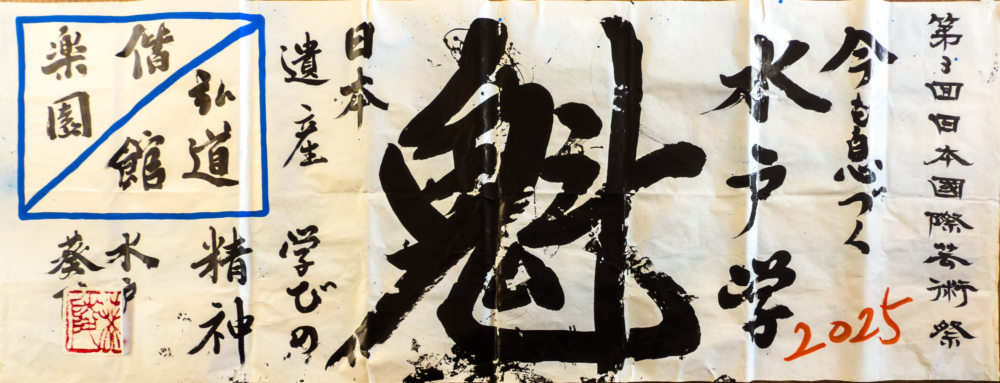 第3回日本國際芸術祭
今も息づく
水戸学
2025
魁
日本
遺産
学びの
精神
弘道
館
偕
楽園
水戸
葵